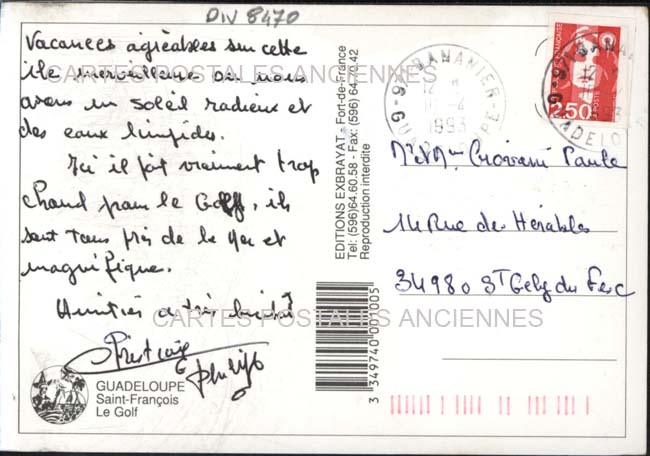 DIV 8470
Vacances agréables sur cette
île merveilleuse où nous
avons un soleil radieux et
des eaux limpides.
Ici il fait vraiment trop
chaud pour le Golf, ils
sont tous près de la Mer et
magnifique.
Amitiés à très bientôt
GUADELOUPE
Saint-François
Le Golf
EDITIONS EXBRAYAT - Fort-de-France
Tel: (596)64.60.58 - Fax: (596) 64.70.42
Reproduction interdite
3 349740 001005
97 BANANIER
1993
2,50
Mr et Mme Giovanni Paule
14 Rue des Hérables
34980 St Gely du Fesc
CARTES POSTALES ANCIENNES
CARTES POSTALES ANCIENNES